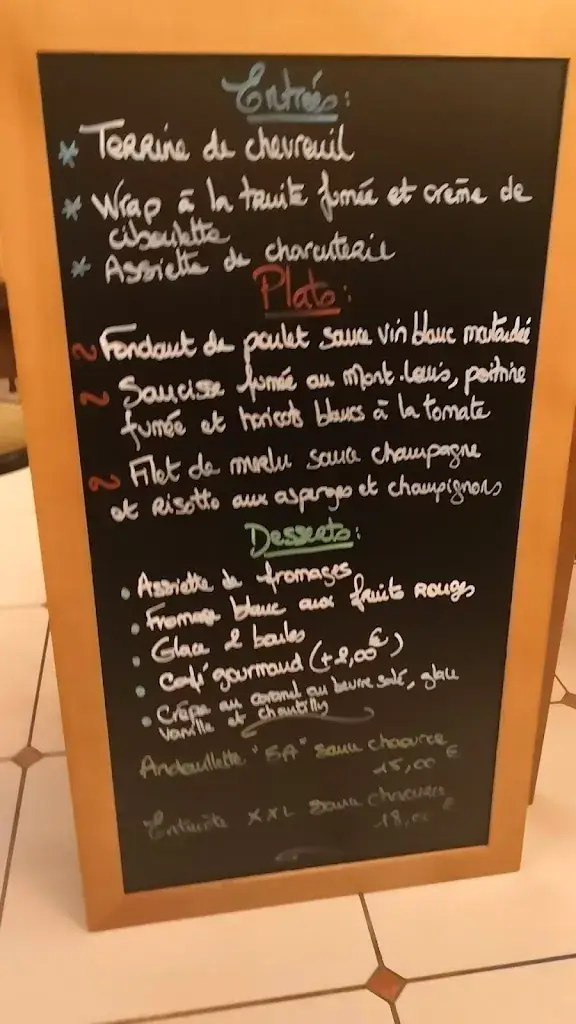 Entrées:
* Terrine de chevreuil
* Wrap à la truite fumée et crème de
ciboulette
* Assiette de charcuterie
Plats:
~ Fondant de poulet sauce vin blanc moutardé
~ Saucisse fumée au Mont-Louis, poitrine
fumée et haricots blancs à la tomate
~ Filet de merlu sauce champagne
et Risotto aux asperges et champignons
Desserts:
• Assiette de fromages
• Fromage blanc aux fruits rouges
• Glace 2 boules
• Café gourmand (+2,00€)
• Crêpe au caramel au beurre salé, glace
vanille et chantilly
Andouillette "5A" sauce chaource
15,00 €
XXL sauce
18,00 €